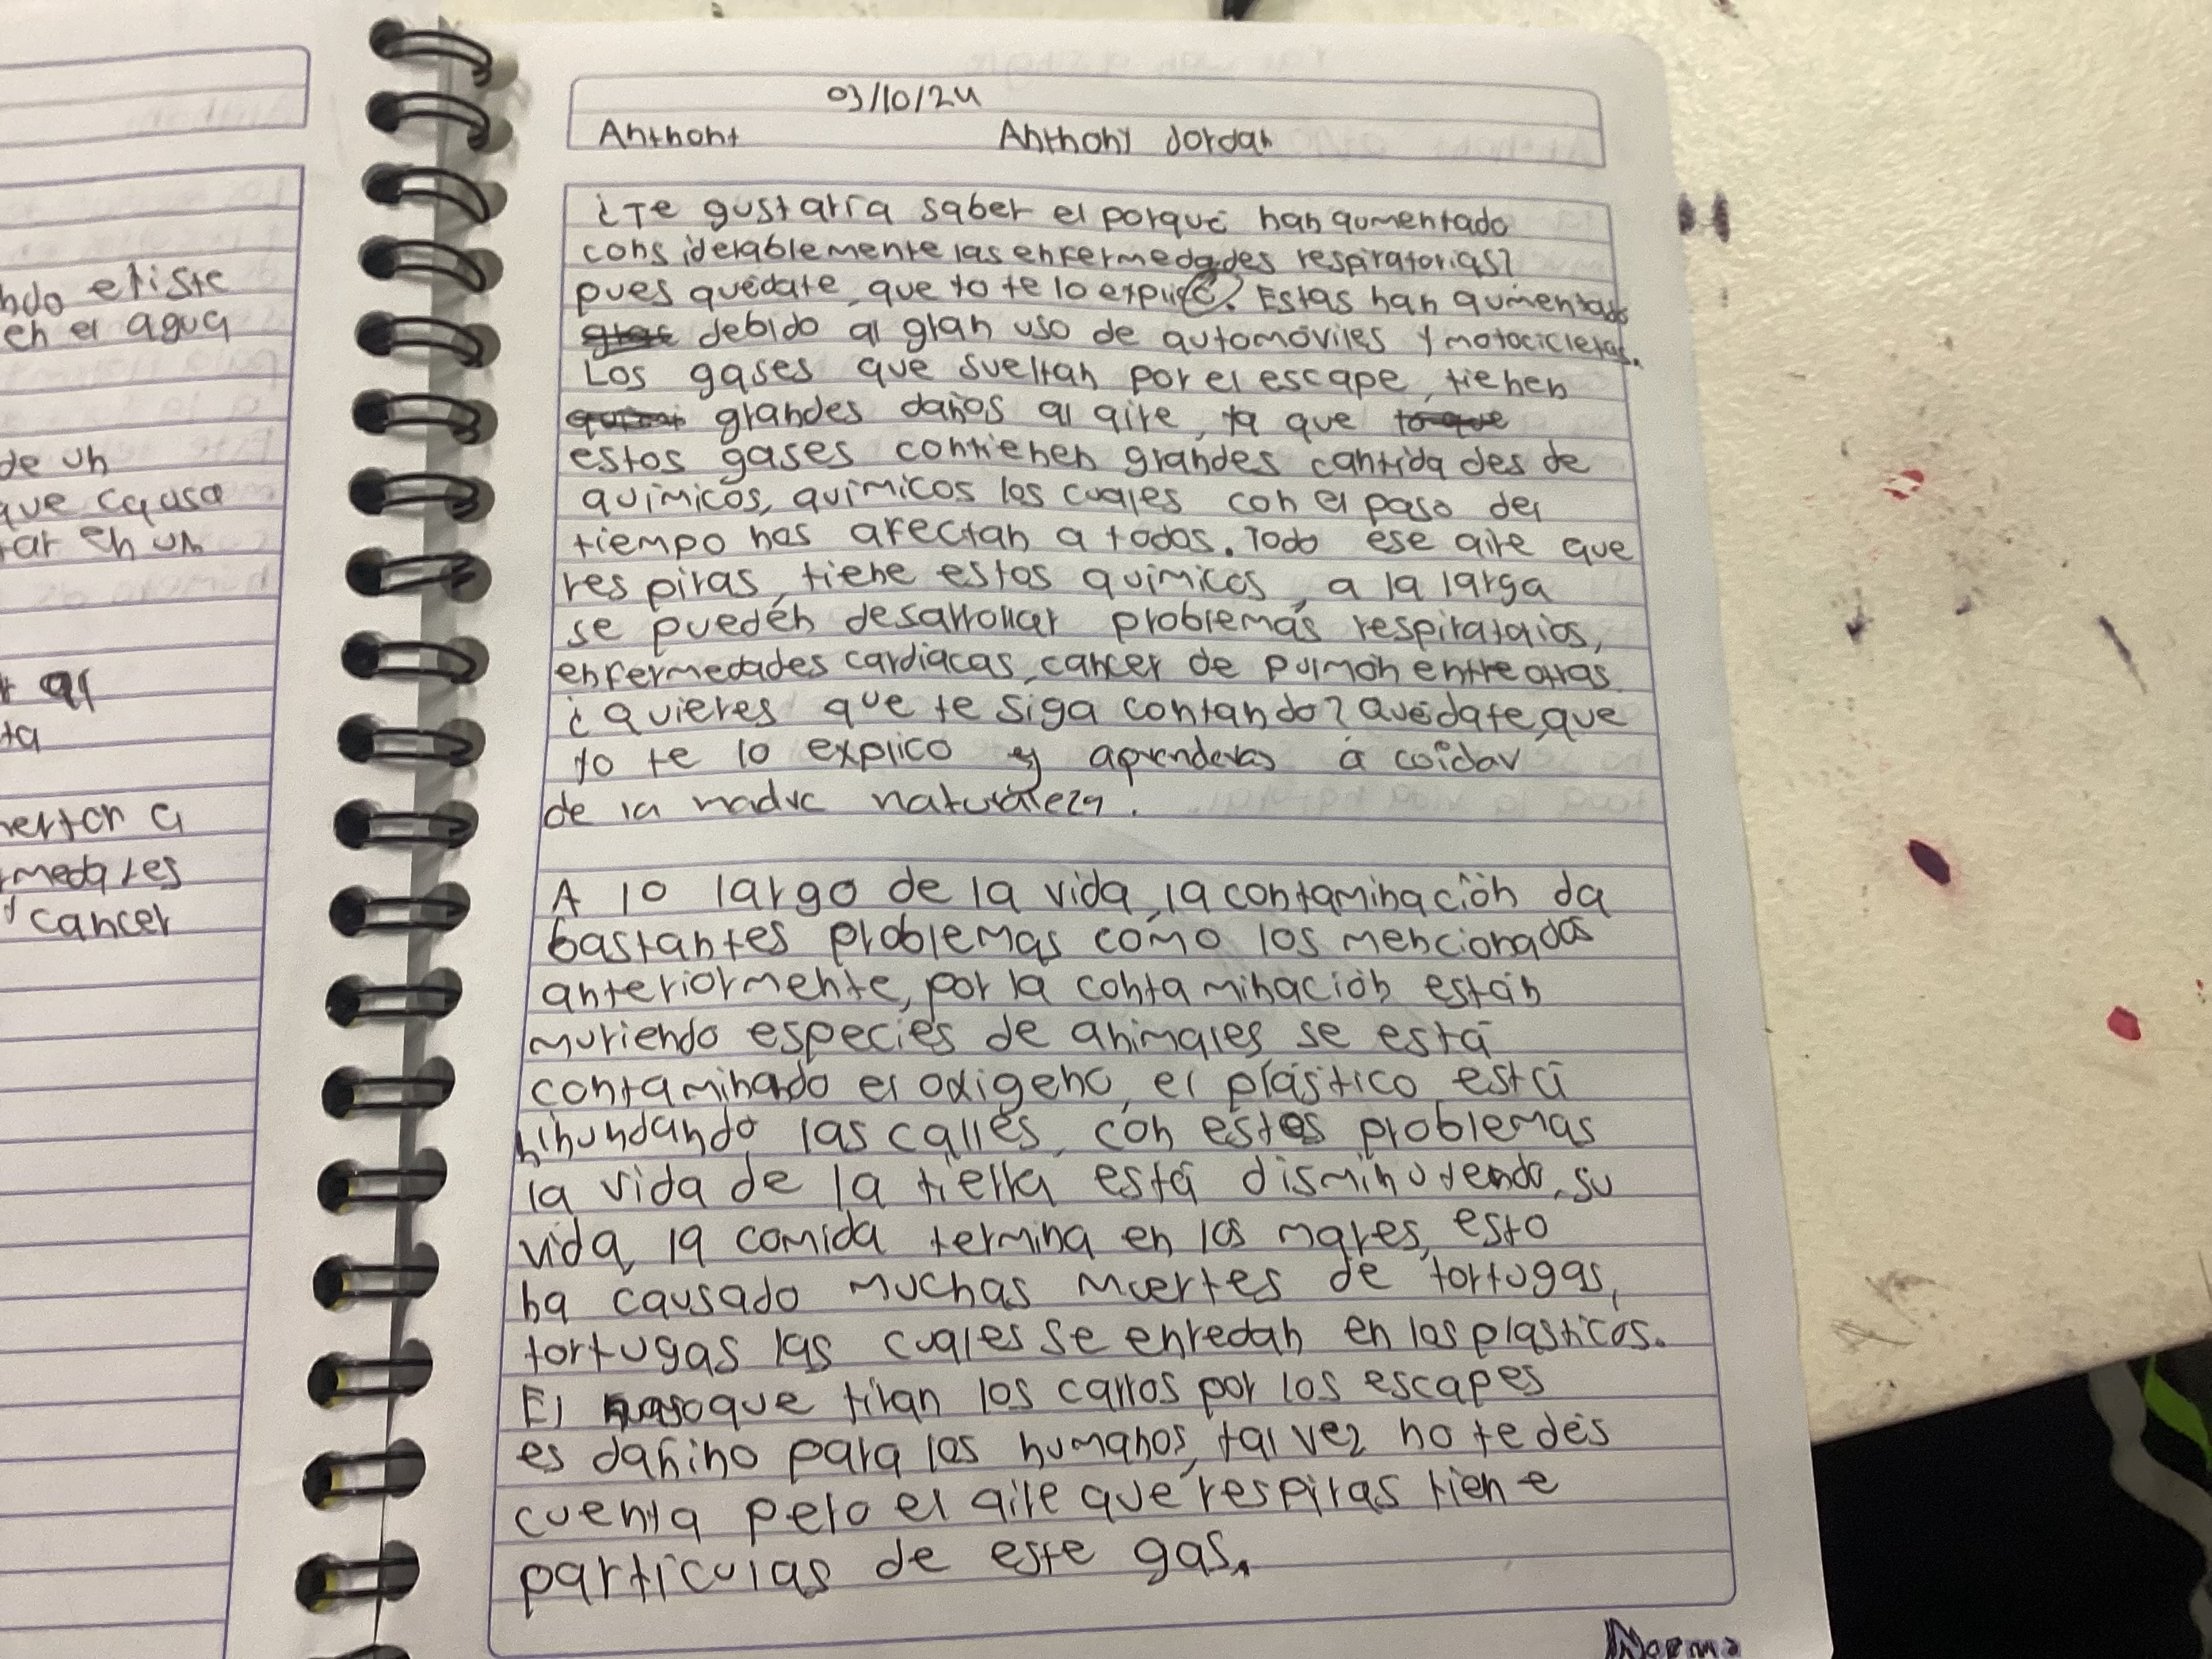 ndo existe
en el agua
de un
que causa
tar en un
r al
ta
nerton a
rmedades
y cancer
03/10/24
Anthony Anthony Jordan
¿Te gustaría saber el porqué han aumentado
considerablemente las enfermedades respiratorias?
pues quédate, que yo te lo explico. Estas han aumentado
debido al gran uso de automóviles y motocicletas.
Los gases que sueltan por el escape, tienen
grandes daños al aire, ya que
estos gases contienen grandes cantidades de
químicos, químicos los cuales con el paso del
tiempo nos afectan a todos. Todo ese aire que
respiras, tiene estos químicos, a la larga
se puedén desarrollar problemás respirataios,
enfermedades cardíacas, cancer de pulmón entre otras.
¿Quieres que te siga contando? Quédate, que
yo te lo explico y aprenderas a coidar
de la madre naturaleza.
A lo largo de la vida, la contaminación da
bastantes problemas como los mencionados
anteriormente, por la contaminación están
muriendo especies de animales se está
contaminado el oxigeno, el plástico está
inundando las calles, con estos problemas
la vida de la tierra está disminuyendo, su
vida, la comida termina en los mares, esto
ha causado muchas muertes de tortugas,
tortugas las cuales se enredan en los plásticos.
El que tiran los carros por los escapes
es dañino para los humanos, tal vez no te dés
cuenta pero el aire que respiras tiene
partículas de este gas.
Norma